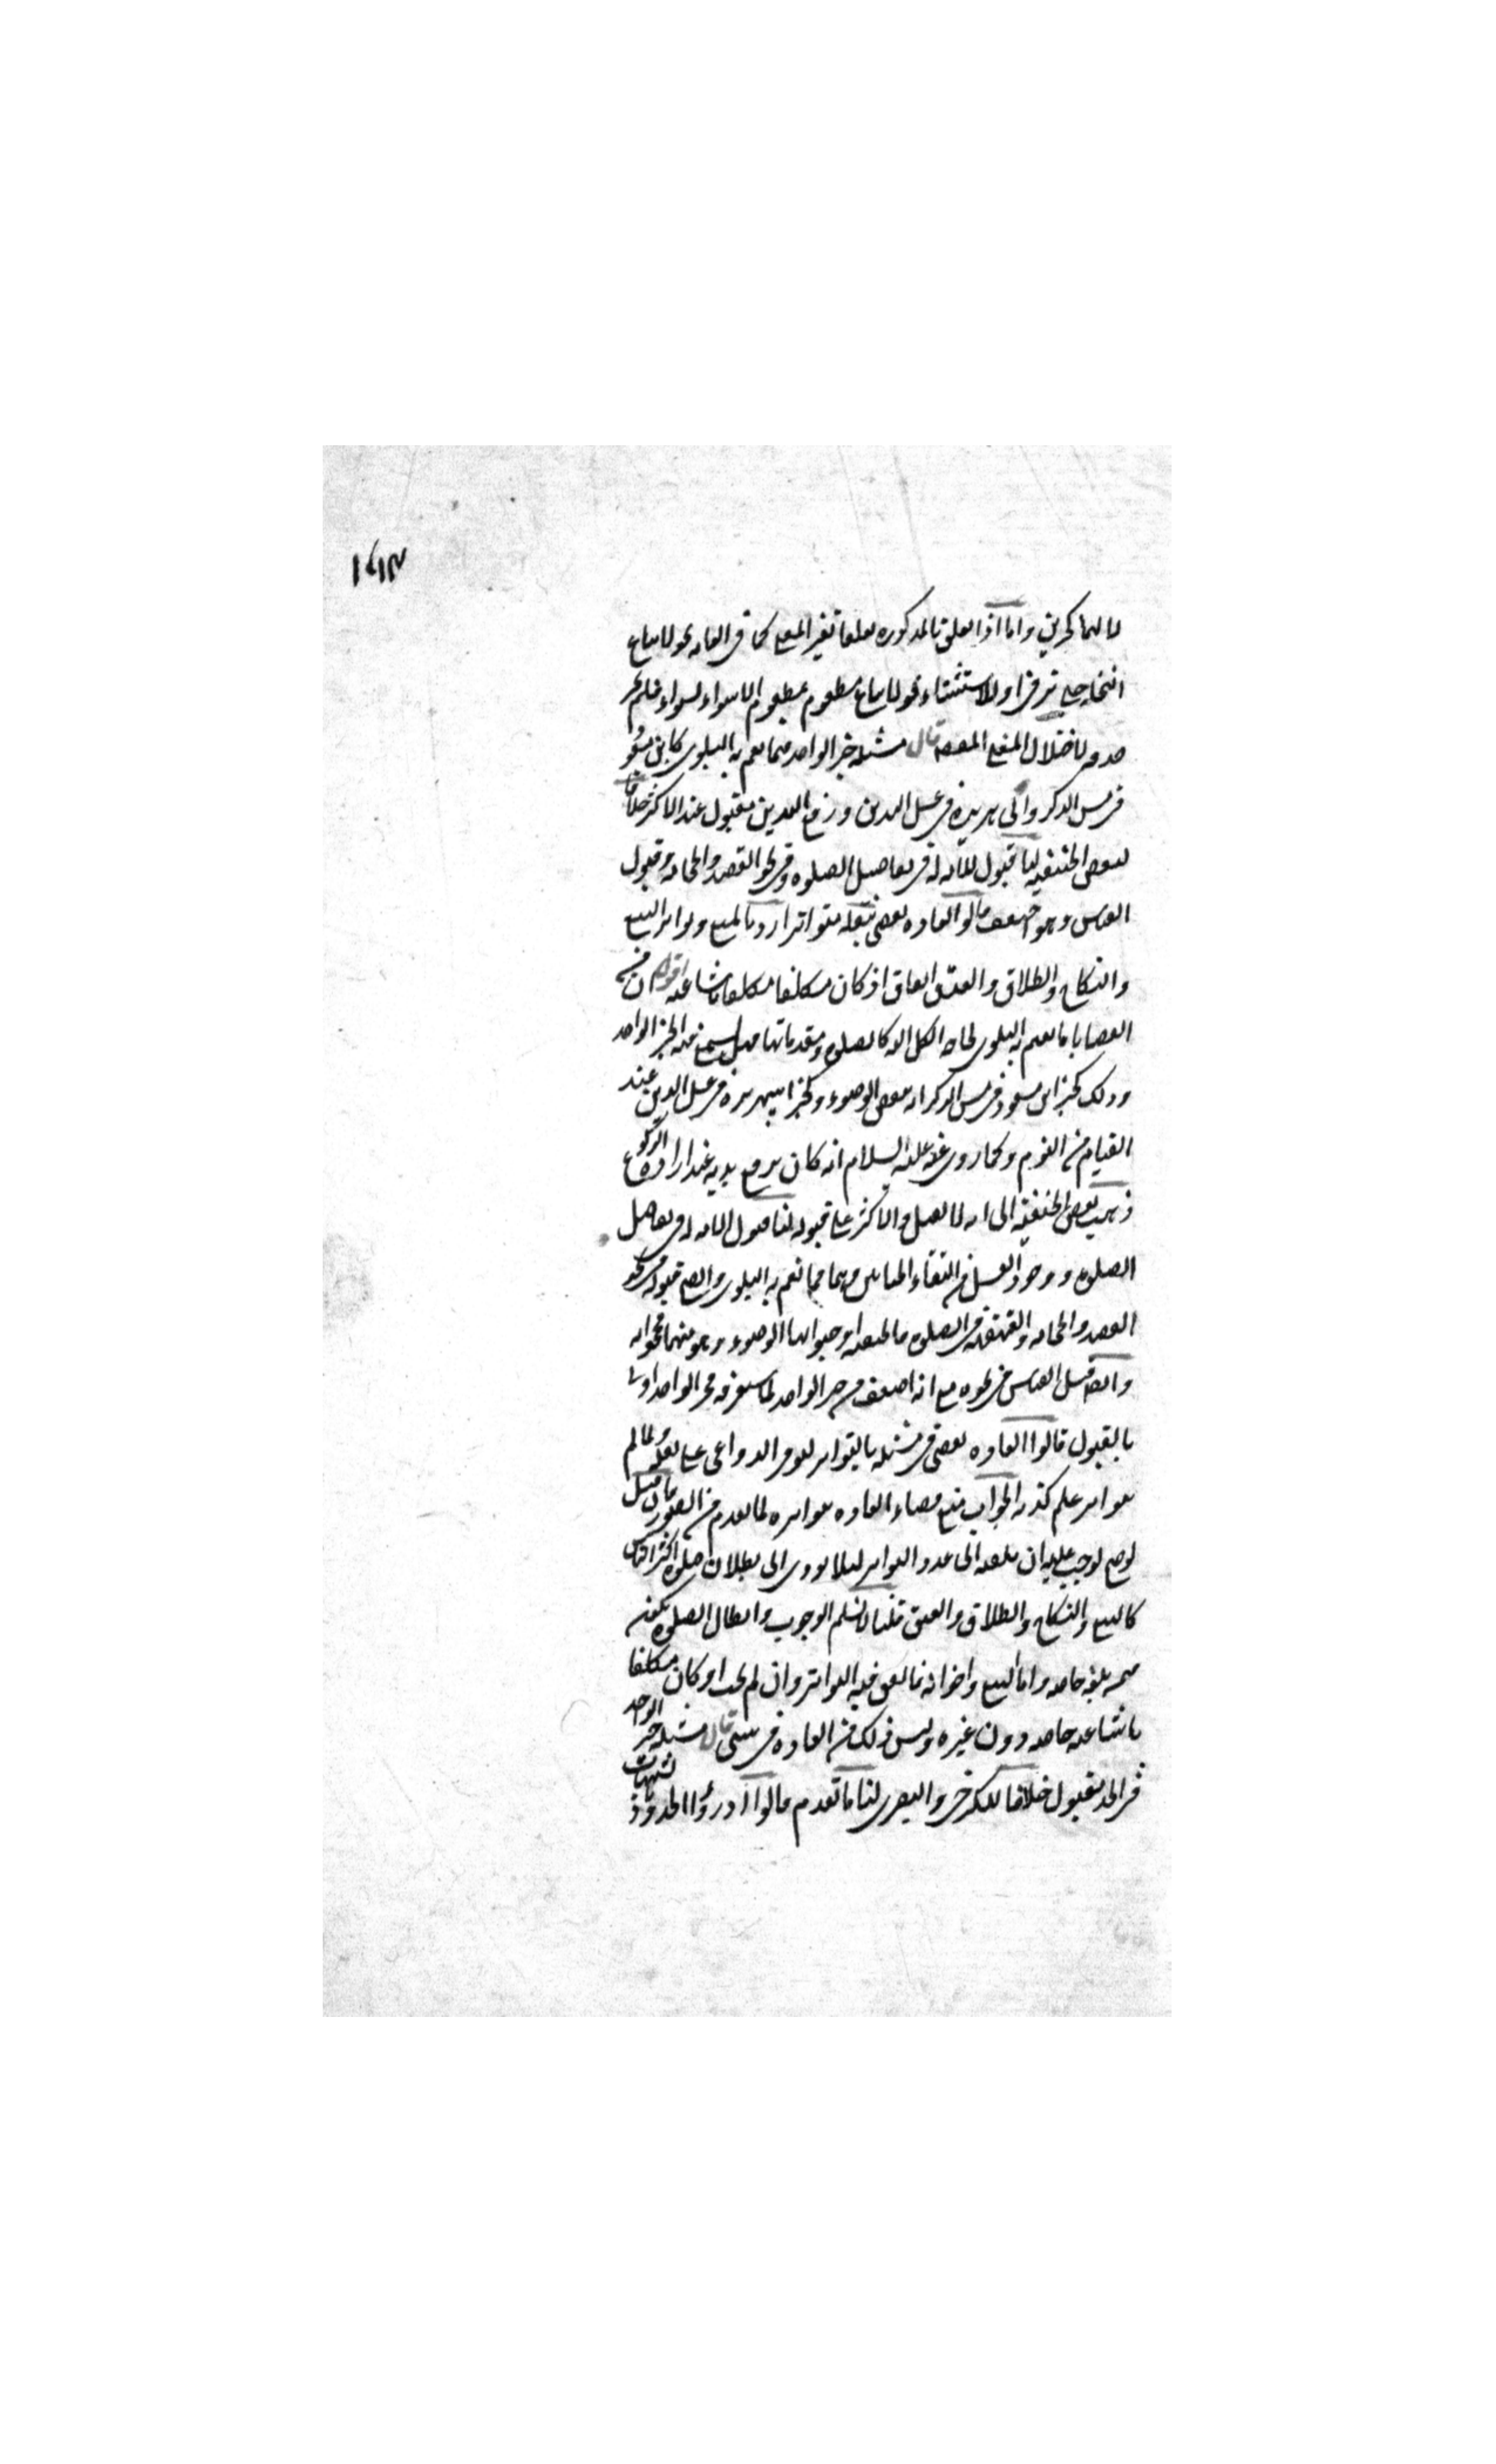 لا لهما كخبرين واما اذا تعلق بالمذكور تعلقا تغير المعنى كما في الغاية نحو لا تباع
النخلة حتى تزهى او للاستثناء نحو لا تباع مطعوم بمطعوم الا سواء بسواء فلم يجز
حذفه لاختلال المعنى المقصود قال مسئلة خبر الواحد فيما تعم به البلوى كابن مسعود
في مس الذكر وابى هريرة في غسل اليدين ورفع اليدين مقبول عند الاكثر خلافا
لبعض الحنفية لنا قبول الامة له في تفاصيل الصلوة وفى نحو الفصد والحجامة وقبول
القياس وهو اضعف قالوا العادة تقضى بنقله متواترا رد بالمنع وتواتر البيع
والنكاح والطلاق والعتق اتفاق او كان مكلفا باشاعته اقول ان من
القضايا ما تعم به البلوى لحاجة الكل اليه كالصلوة ومقدماتها فهل يسمع فيه الخبر الواحد
وذلك كخبر ابن مسعود في مس الذكر انه ينقض الوضوء وكخبر ابى هريرة في غسل اليدين عند
القيام من النوم وكما روى عنه عليه السلام انه كان يرفع يديه عند ارادة الركوع
ذهب بعض الحنفية الى انه لا يقبل والاكثر على قبوله لنا قبول الامة له في تفاصيل
الصلوة ووجوب الغسل من التقاء الختانين وهما مما تعم به البلوى وايضا قبوله في نحو
الفصد والحجامة والقهقهة في الصلوة فالحنفية اوجبوا بها الوضوء وهو منهما فجوابه
وايضا قبل القياس في نحوه مع انه اضعف من خبر الواحد لما سنعرفه فخبر الواحد اولى
بالقبول قالوا العادة تقضى في مثله بالتواتر لتوفر الدواعى على نقله ولما لم
يتواتر علم كذبه الجواب منع قضاء العادة بتواتره لما تقدم من الصور فان قيل
لو صح لوجب عليه ان يلقيه الى عدد التواتر لئلا يؤدى الى بطلان صلوة اكثر الناس
كالبيع والنكاح والطلاق والعتق قلنا لا نسلم الوجوب وابطال الصلوة يكون
فيمن بلغه خاصة واما البيع واخواته فاتفق فيه التواتر وان لم يجب او كان مكلفا
باشاعته خاصة دون غيره وليس ذلك من العادة في شىء قال مسئلة خبر الواحد
في الحد مقبول خلافا للكرخى والبصرى لنا ما تقدم قالوا ادرؤا الحدود بالشبهات